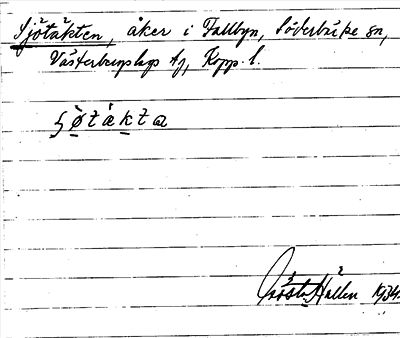 Sjötäkten, åker i Fallbyn, Söderbärke sn,
Västerbergslags dg, Kopp. l.
ʃø̀tǽkta
Gösta Hallén